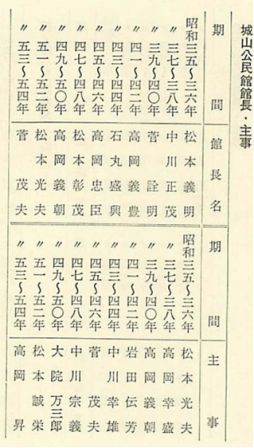 城山公民館館長・主事
期間 館長名 期間 主事
昭和三五〜三六年 松本義明 昭和三五〜三六年 松本光夫
〃 三七〜三八年 中川正茂 〃 三七〜三八年 高岡幸盛
〃 三九〜四〇年 菅詮明 〃 三九〜四〇年 高岡義朝
〃 四一〜四二年 高岡義豊 〃 四一〜四二年 岩田伝芳
〃 四三〜四四年 石丸盛興 〃 四三〜四四年 中川幸雄
〃 四五〜四六年 高岡忠臣 〃 四五〜四六年 菅茂夫
〃 四七〜四八年 松本彰茂 〃 四七〜四八年 中川宗義
〃 四九〜五〇年 高岡義朝 〃 四九〜五〇年 大院万三郎
〃 五一〜五二年 松本光夫 〃 五一〜五二年 松本誠栄
〃 五三〜五四年 菅茂夫 〃 五三〜五四年 高岡昇